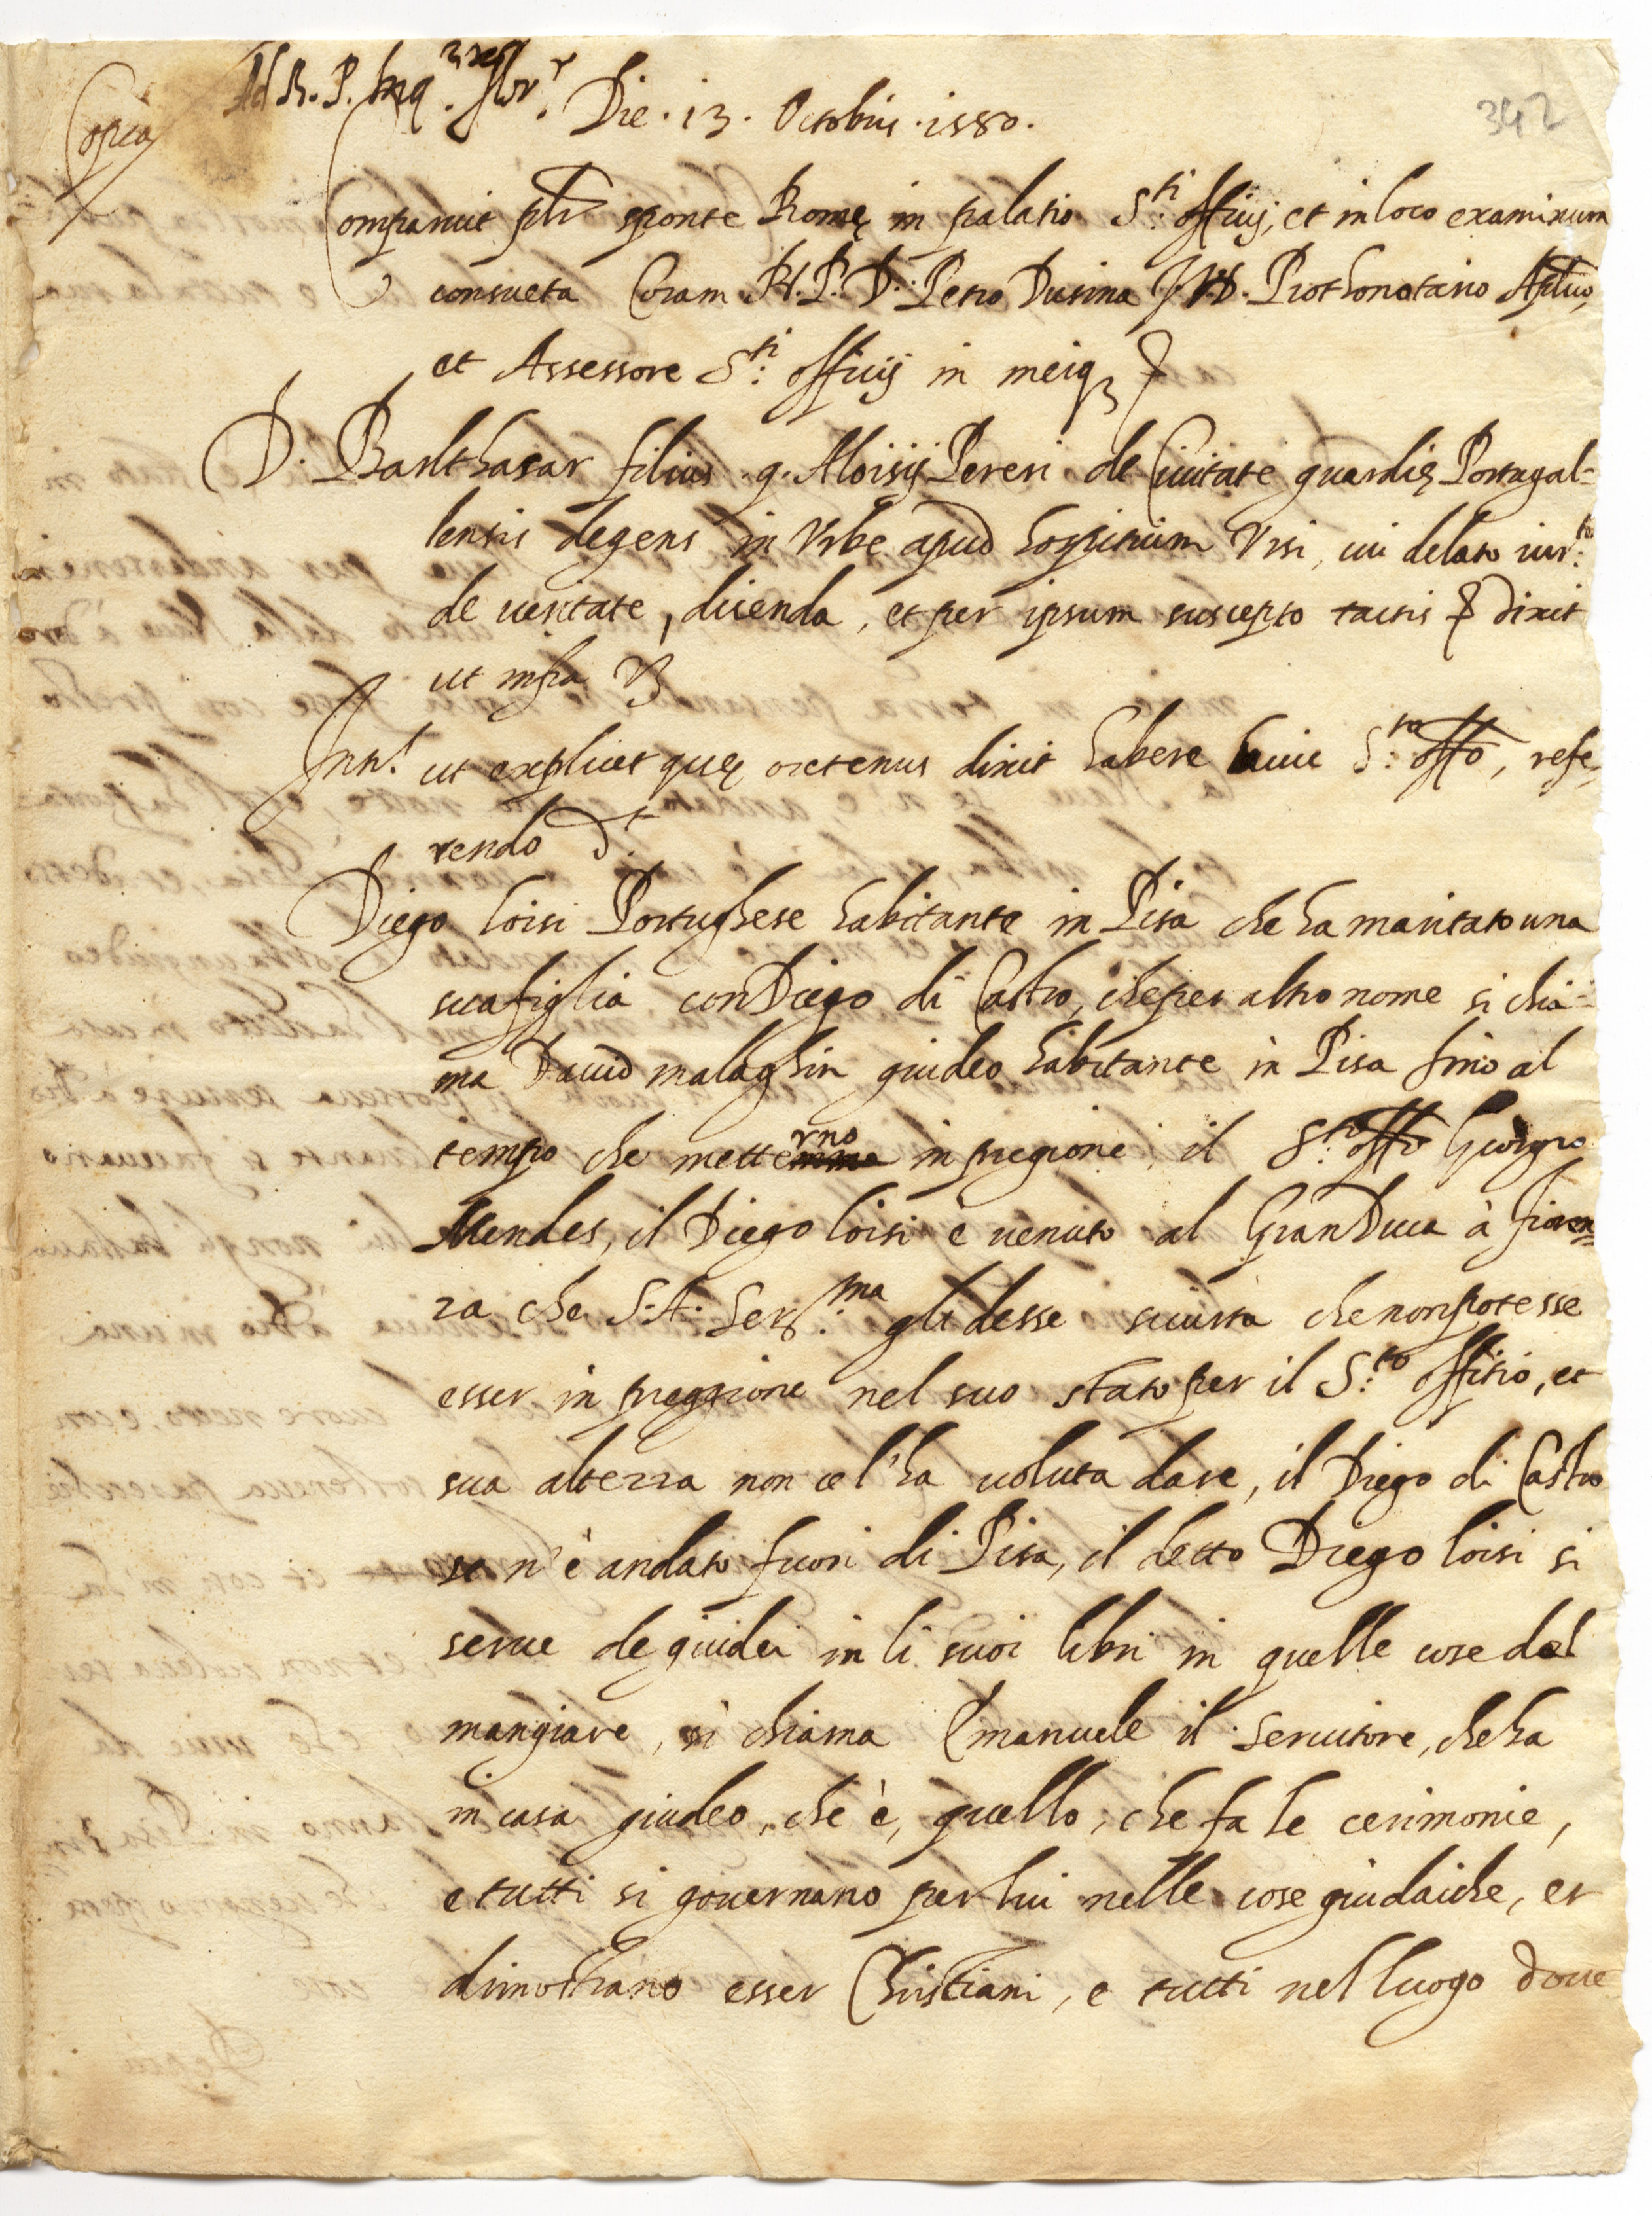 Copia
Ad R. P. Inq.rem flor.
342
Die . 13 . Octobris . 1580 .
Comparuit plr sponte Romę in palatio S.ti officij, et in loco examinum
consueta Coram R. P. D. Petro Dusina J.V.D. Prothonotario Aplico,
et Assessore S.ti officij in meiq3
D. Balthasar filius . q. Aloisij Pereri de Ciuitate guardię Portugal=
lensis degens in Vrbe apud hospitium Vrsi, cui delato iur.to
de ueritate, dicenda, et per ipsum suscepto tactis & dixit
ut infra V3
Int.s ut explicet quę oretenus dixit habere huic S.to offo, refe,
rendo d.t
Diego loisi Portughese habitante in Pisa che ha maritato una
sua figlia con Diego di Castro, che per altro nome si chia=
ma Dauid malaghin giudeo habitante in Pisa fino al
tempo che metterno in pregione, il S.to offo Giorgio
Mendes, il Diego loisi è uenuto al Gran Duca à fioren=
za che S. A. Ser.ma gli desse sicurtà che non potesse
esser in preggione nel suo stato per il S.to offitio, et
sua altezza non cel'ha uoluta dare, il Diego di Castro
se n'è andato fuori di Pisa, il detto Diego loisi si
serue de giudei in li suoi libri in quelle cose del
mangiare, si chiama Emanuele il seruitore, che ha
in casa giudeo, che è, quello, che fa le cerimonie,
e tutti si gouernano per lui nelle cose giudaiche, et
dimostrano esser Christiani, e tutti nel luogo doue